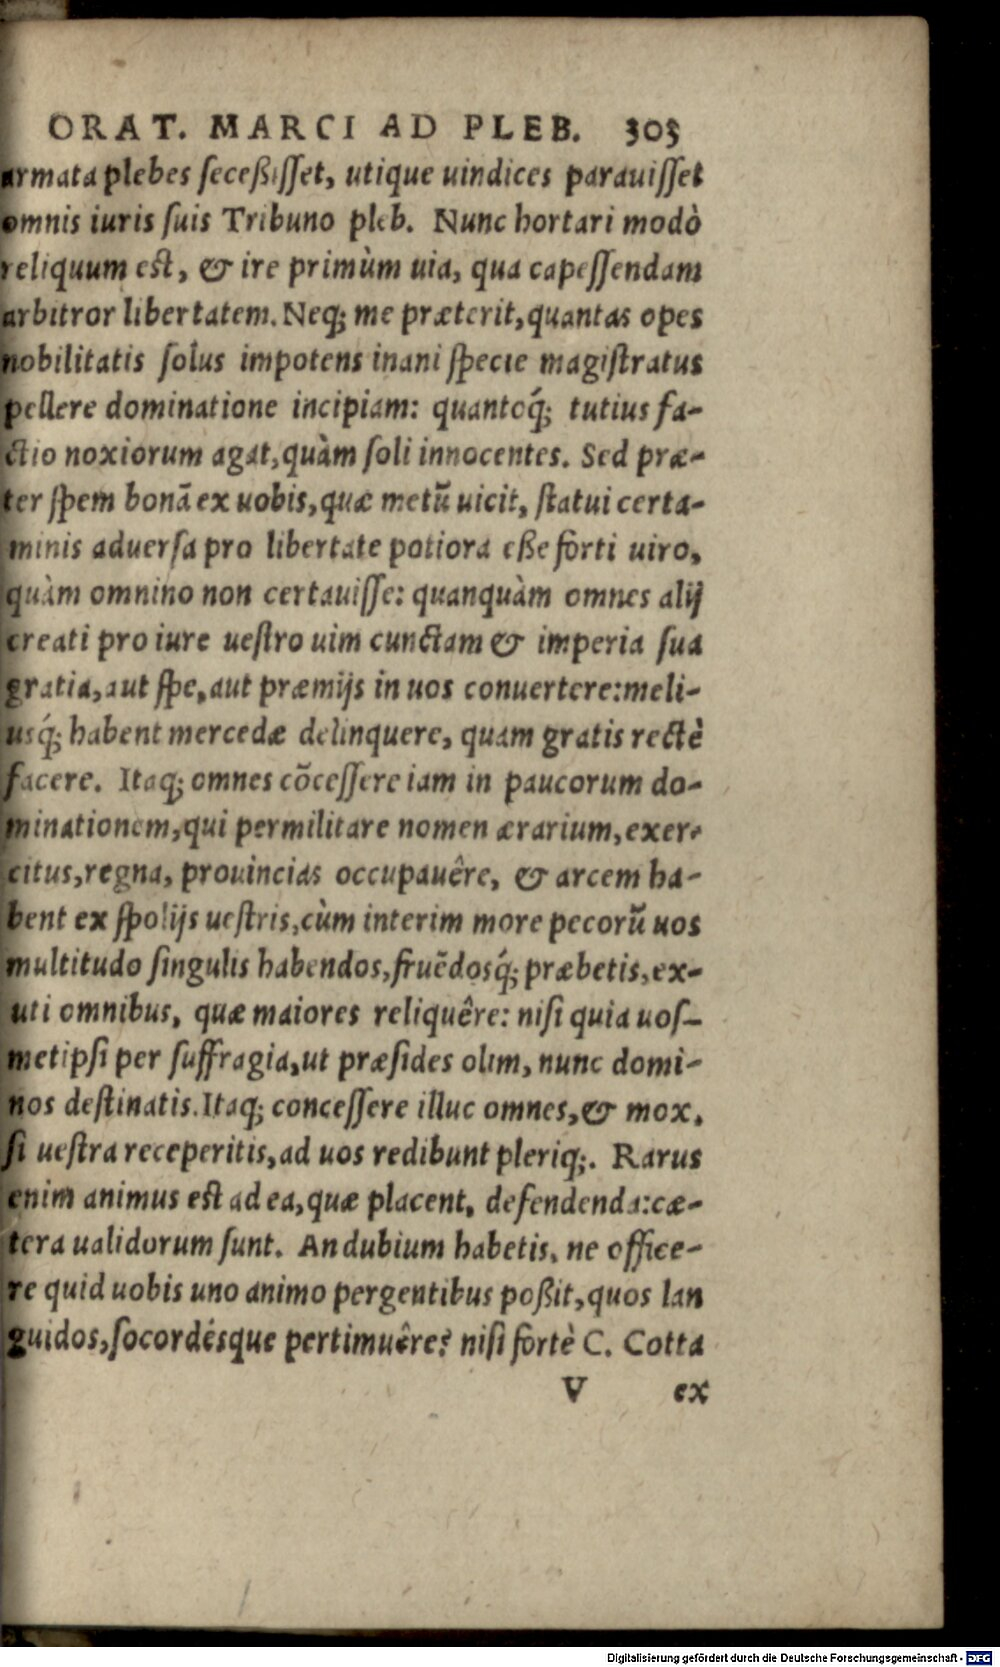 ORAT. MARCI AD PLEB. 305
armata plebes seceßisset, utique uindices parauisset
omnis iuris suis Tribuno pleb. Nunc hortari modò
reliquum est, & ire primùm uia, qua capessendam
arbitror libertatem. Neq; me præterit, quantas opes
nobilitatis solus impotens inani specie magistratus
pellere dominatione incipiam: quantoq́; tutius fa-
ctio noxiorum agat, quàm soli innocentes. Sed præ-
ter spem bonã ex uobis, quæ metũ uicit, statui certa-
minis aduersa pro libertate potiora eße forti uiro,
quàm omnino non certauisse: quanquàm omnes alij
creati pro iure uestro uim cunctam & imperia sua
gratia, aut spe, aut præmijs in uos conuertere: meli-
usq́; habent mercedæ delinquere, quam gratis rectè
facere. Itaq; omnes cõcessere iam in paucorum do-
minationem, qui per militare nomen ærarium, exer-
citus, regna, prouincias occupauêre, & arcem ha-
bent ex spolijs uestris, cùm interim more pecorũ uos
multitudo singulis habendos, fruẽdosq́; præbetis, ex-
uti omnibus, quæ maiores reliquêre: nisi quia uos-
metipsi per suffragia, ut præsides olim, nunc domi-
nos destinatis. Itaq; concessere illuc omnes, & mox,
si uestra receperitis, ad uos redibunt pleriq;. Rarus
enim animus est ad ea, quæ placent, defendenda: cæ-
tera ualidorum sunt. An dubium habetis, ne office-
re quid uobis uno animo pergentibus poßit, quos lan
guidos, socordésque pertimuêre? nisi fortè C. Cotta
V ex
Digitalisierung gefördert durch die Deutsche Forschungsgemeinschaft - DFG